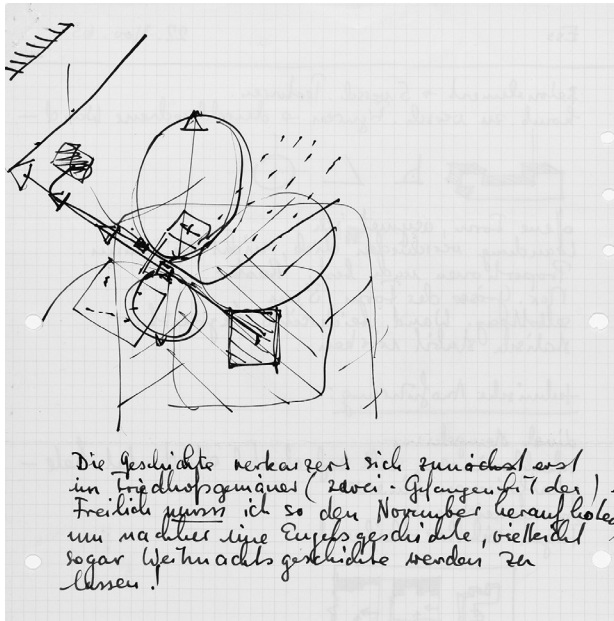 Die Geschichte verkarzert sich zunächst erst
im Friedhofsgemäuer (zwei - Gefangen
Freilich muss ich so den November heraufholen
um nachher eine Engelsgeschichte, vielleicht
sogar Weihnachtsgeschichte werden zu
lassen!